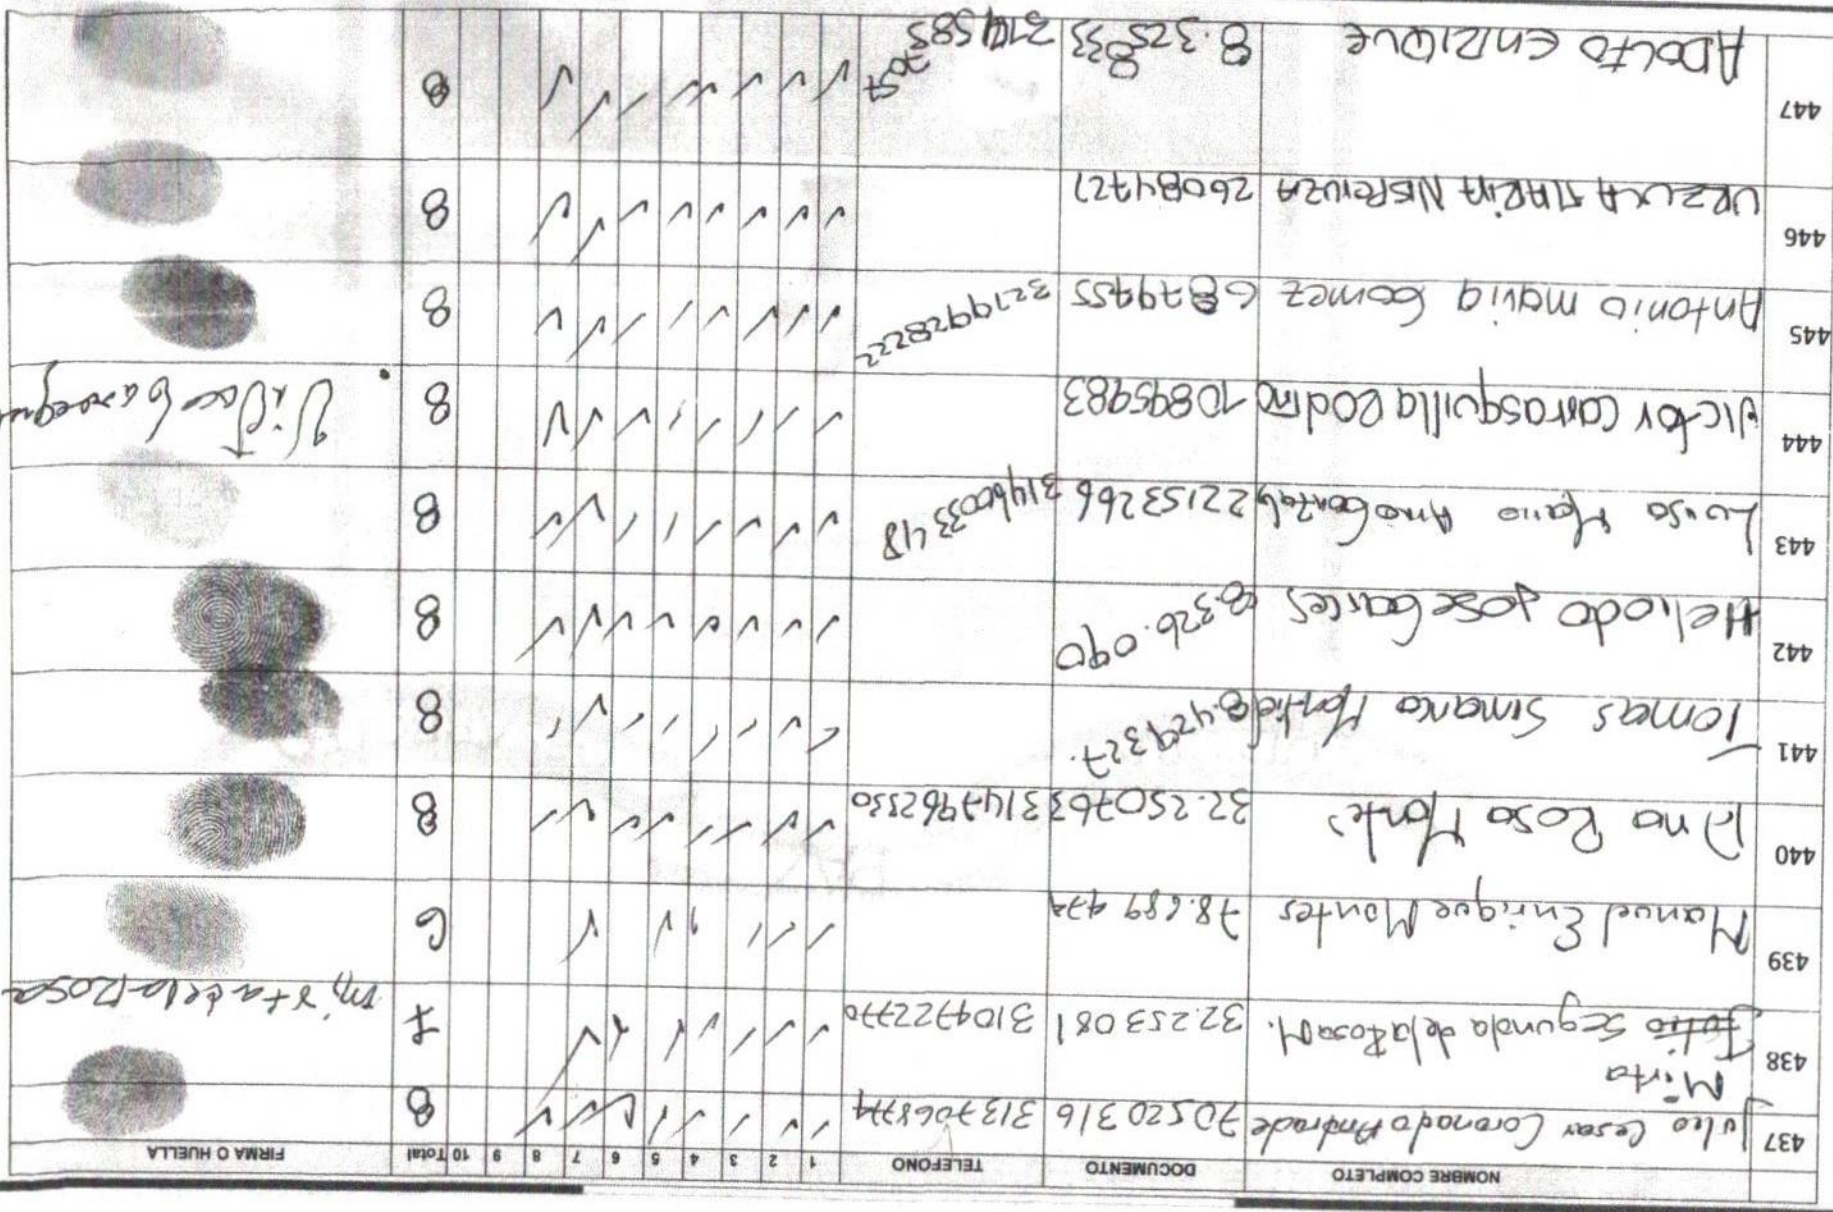 NOMBRE COMPLETO DOCUMENTO TELEFONO 1 2 3 4 5 6 7 8 9 10 Total FIRMA O HUELLA
437 Julio Cesar Coronado Andrade 70520316 3137068774 8
Mirta
438 Julio Segunda de la Rosa M. 32.253081 3104722770 7 mirta de la Rosa
439 Manuel Enrique Montes 78.689 474 6
440 Ana Rosa Montes 32.250763 3147962530 8
441 Tomas Simanca 8.429327. 8
442 Heliodo Jose Garces 8.326.090 8
443 Luisa Maria 22153266 3146033418 8
444 Victor Carrasquilla 10895983 8
445 Antonio maria Gomez 6879955 3219928222 8
446 URZULA MARIA 26084727 8
447 ADOLFO ENRIQUE 8.325833 8